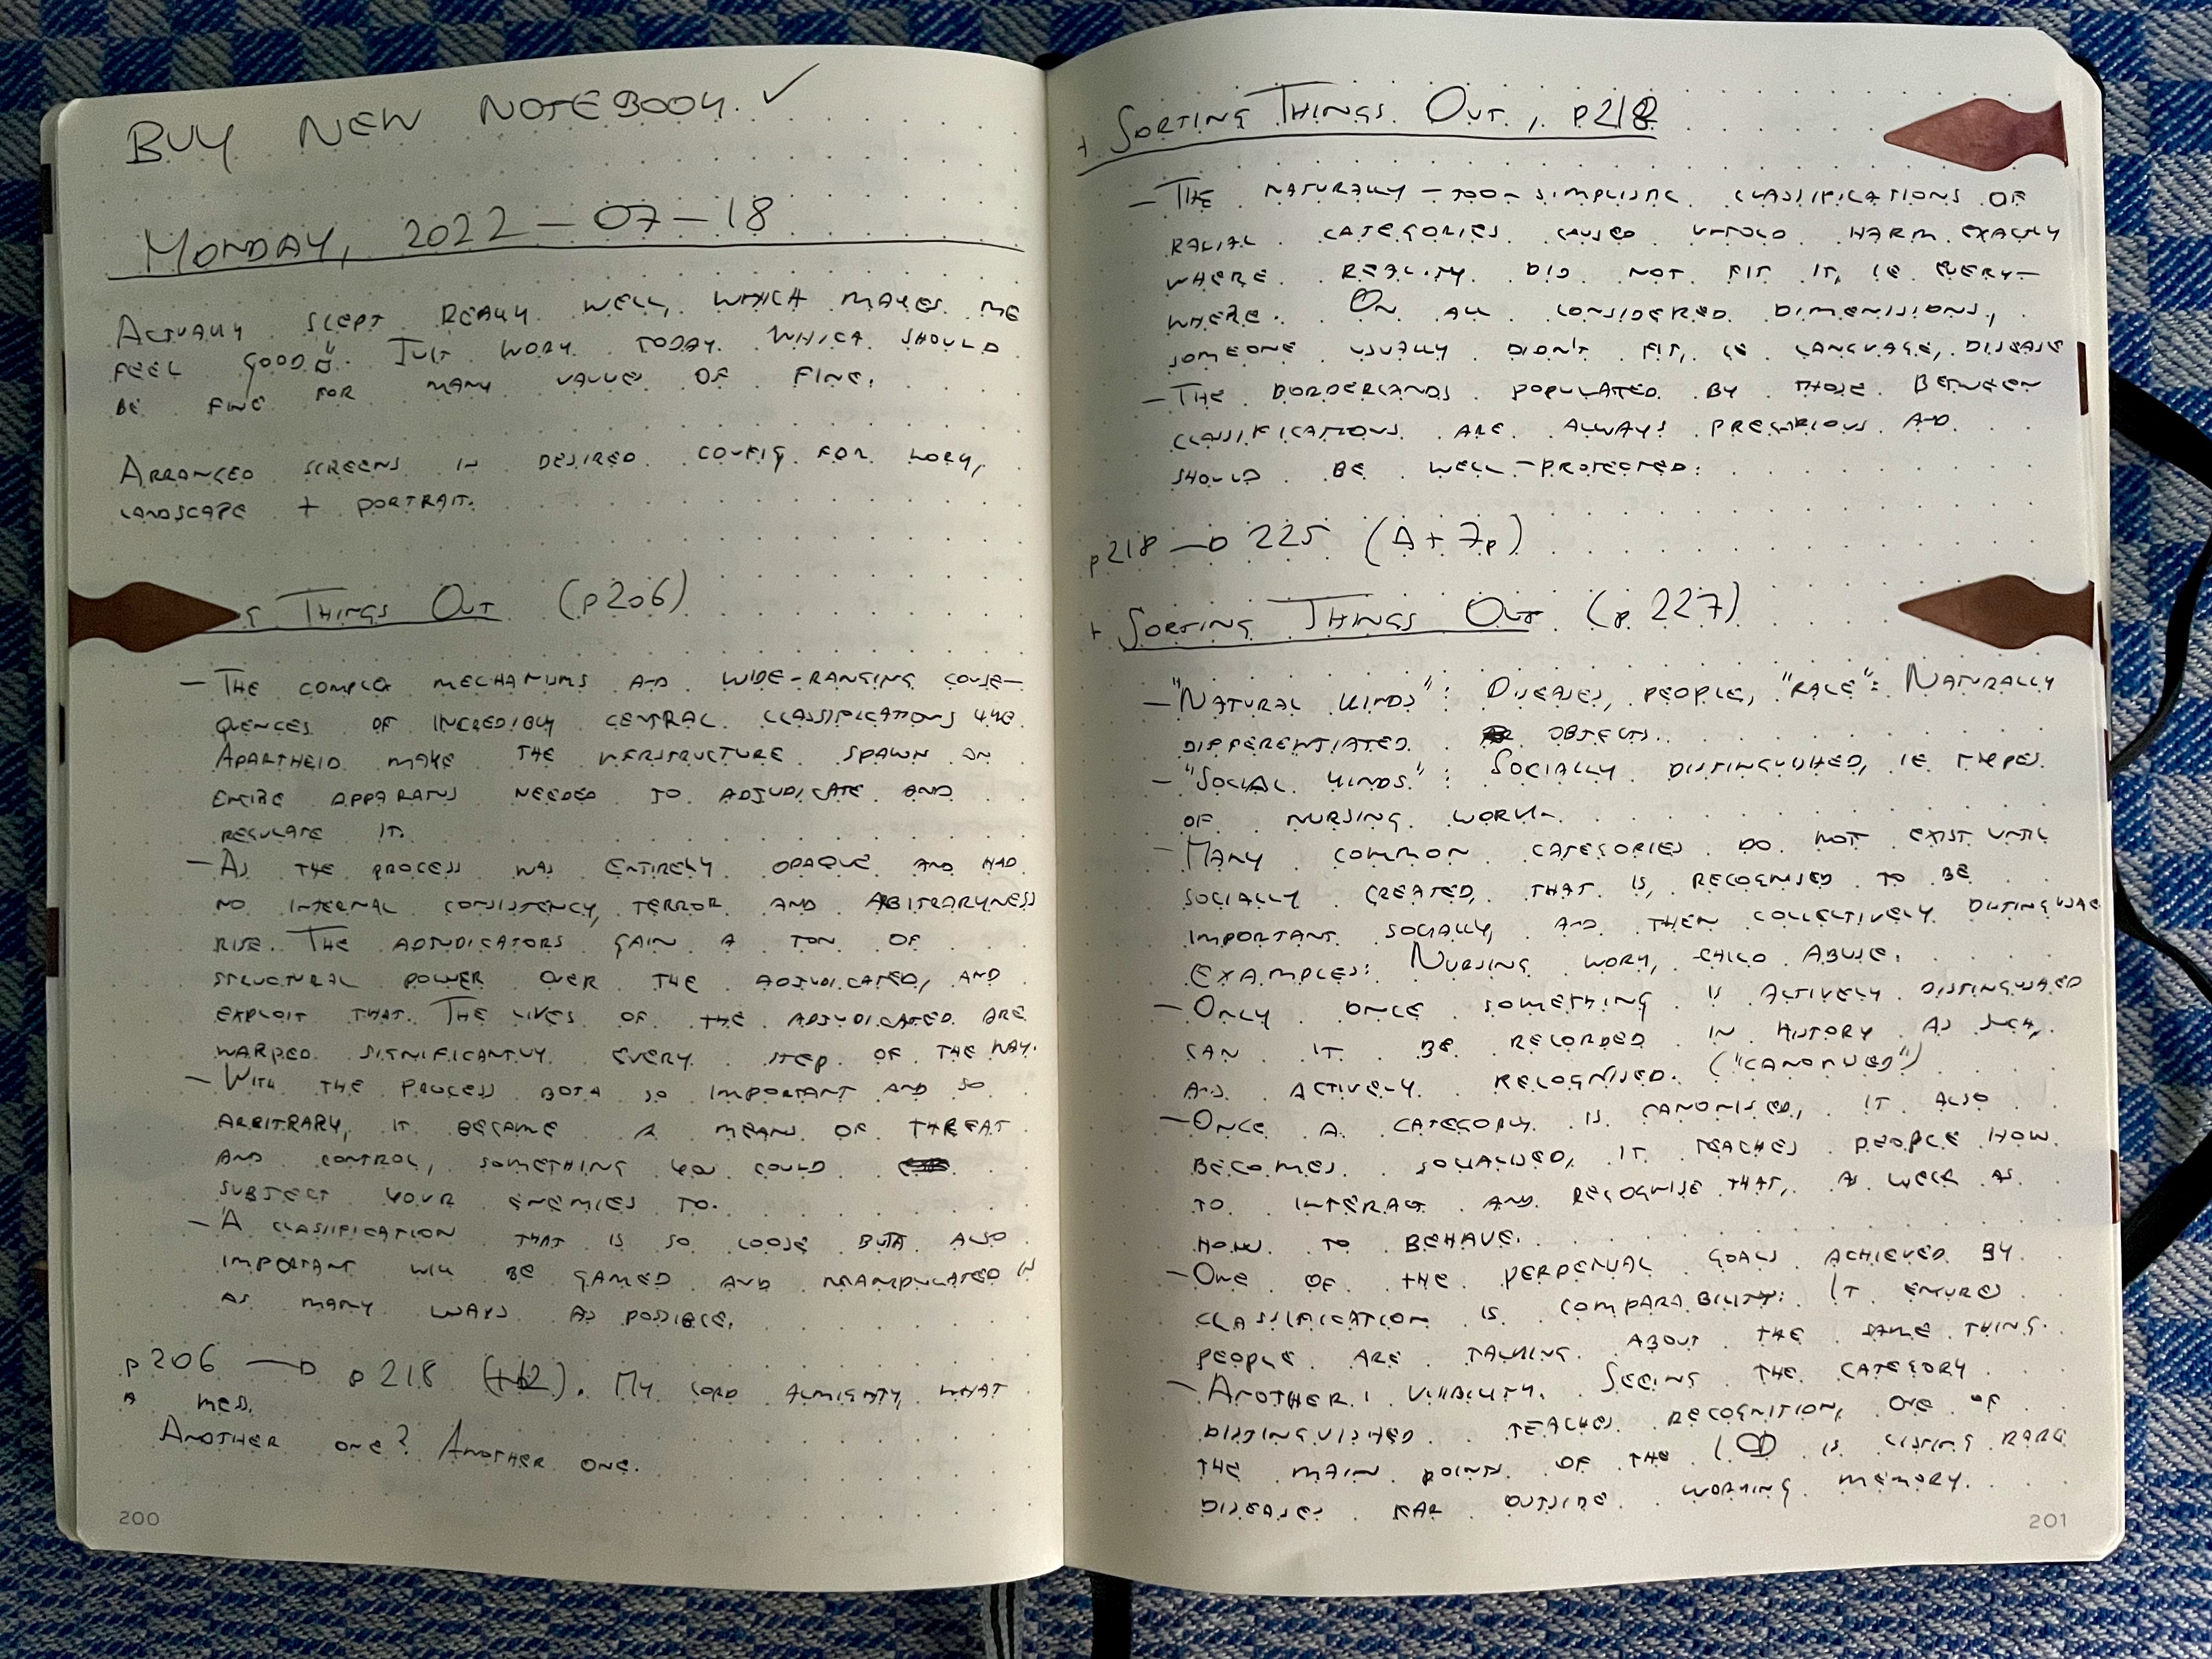 BUY NEW NOTEBOOK. ✓
MONDAY, 2022-07-18
ACTUALLY SLEPT REALLY WELL, WHICH MAKES ME
FEEL GOOD. JUST WORK TODAY WHICH SHOULD
BE FINE FOR MANY VALUES OF FINE.
ARRANGED SCREENS IN DESIRED CONFIG FOR WORK,
LANDSCAPE + PORTRAIT.
G THINGS OUT (p206)
- THE COMPLEX MECHANISMS AND WIDE-RANGING CONSE-
QUENCES OF INCREDIBLY CENTRAL CLASSIFICATIONS LIKE
APARTHEID MAKE THE INFRSTRUCTURE SPAWN AN
ENTIRE APPARATUS NEEDED TO ADJUDICATE AND
REGULATE IT.
- AS THE PROCESS WAS ENTIRELY OPAQUE AND HAD
NO INTERNAL CONSISTENCY, TERROR AND ARBITRARYNESS
RISE. THE ADJUDICATORS GAIN A TON OF
STRUCTURAL POWER OVER THE ADJUDICATED, AND
EXPLOIT THAT. THE LIVES OF THE ADJUDICATED ARE
WARPED SIGNIFICANTLY EVERY STEP OF THE WAY.
- WITH THE PROCESS BOTH SO IMPORTANT AND SO
ARBITRARY, IT BECAME A MEANS OF THREAT
AND CONTROL, SOMETHING YOU COULD
SUBJECT YOUR ENEMIES TO.
- A CLASSIFICATION THAT IS SO LOOSE BUT ALSO
IMPORTANT WILL BE GAMED AND MANIPULATED IN
AS MANY WAYS AS POSSIBLE.
p206 → p218 (+12). MY LORD ALMIGHTY, WHAT
A MESS.
ANOTHER ONE? ANOTHER ONE.
200
+ SORTING THINGS OUT, p218
- THE NATURALLY-TOO-SIMPLISTIC CLASSIFICATIONS OF
RACIAL CATEGORIES CAUSED UNTOLD HARM EXACTLY
WHERE REALITY DID NOT FIT IT, IE EVERY-
WHERE. ON ALL CONSIDERED DIMENSIONS,
SOMEONE USUALLY DIDN'T FIT, IE LANGUAGE, DISEASE
- THE BORDERLANDS POPULATED BY THOSE BETWEEN
CLASSIFICATIONS ARE ALWAYS PRECARIOUS AND
SHOULD BE WELL-PROTECTED.
p218 → 225 (Δ+7p)
+ SORTING THINGS OUT (p 227)
- "NATURAL KINDS": DISEASES, PEOPLE, "RACE": NATURALLY
DIFFERENTIATED OBJECTS.
- "SOCIAL KINDS": SOCIALLY DISTINGUISHED, IE TYPES
OF NURSING WORK.
- MANY COMMON CATEGORIES DO NOT EXIST UNTIL
SOCIALLY CREATED, THAT IS, RECOGNISED TO BE
IMPORTANT SOCIALLY, AND THEN COLLECTIVELY DISTINGUISHED
EXAMPLES: NURSING WORK, CHILD ABUSE.
- ONLY ONCE SOMETHING IS ACTIVELY DISTINGUISHED
CAN IT BE RECORDED IN HISTORY AS SUCH,
AND ACTIVELY RECOGNISED. ("CANONISED")
- ONCE A CATEGORY IS CANONISED, IT ALSO
BECOMES SOCIALISED, IT TEACHES PEOPLE HOW
TO INTERACT AND RECOGNISE THAT, AS WELL AS
HOW TO BEHAVE.
- ONE OF THE PERPETUAL GOALS ACHIEVED BY
CLASSIFICATION IS COMPARABILITY: IT ENSURES
PEOPLE ARE TALKING ABOUT THE SAME THING.
- ANOTHER: VISIBILITY. SEEING THE CATEGORY
DISTINGUISHED TEACHES RECOGNITION, ONE OF
THE MAIN POINTS OF THE ICD IS LISTING RARE
DISEASES FAR OUTSIDE WORKING MEMORY.
201